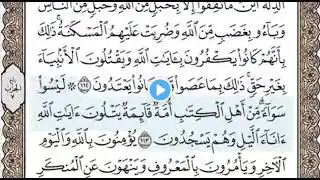 ٱلذِّلَّةُ أَيْنَ مَا ثُقِفُوٓا۟ إِلَّا بِحَبْلٍ مِّنَ ٱللَّهِ وَحَبْلٍ مِّنَ ٱلنَّاسِ
وَبَآءُو بِغَضَبٍ مِّنَ ٱللَّهِ وَضُرِبَتْ عَلَيْهِمُ ٱلْمَسْكَنَةُ ۚ ذَٰلِكَ
بِأَنَّهُمْ كَانُوا۟ يَكْفُرُونَ بِـَٔايَٰتِ ٱللَّهِ وَيَقْتُلُونَ ٱلْأَنۢبِيَآءَ
بِغَيْرِ حَقٍّ ۚ ذَٰلِكَ بِمَا عَصَوا۟ وَّكَانُوا۟ يَعْتَدُونَ ١١٢ ۞ لَيْسُوا۟
سَوَآءً ۗ مِّنْ أَهْلِ ٱلْكِتَٰبِ أُمَّةٌ قَآئِمَةٌ يَتْلُونَ ءَايَٰتِ ٱللَّهِ
ءَانَآءَ ٱلَّيْلِ وَهُمْ يَسْجُدُونَ ١١٣ يُؤْمِنُونَ بِٱللَّهِ وَٱلْيَوْمِ
ٱلْءَاخِرِ وَيَأْمُرُونَ بِٱلْمَعْرُوفِ وَيَنْهَوْنَ عَنِ ٱلْمُنكَرِ